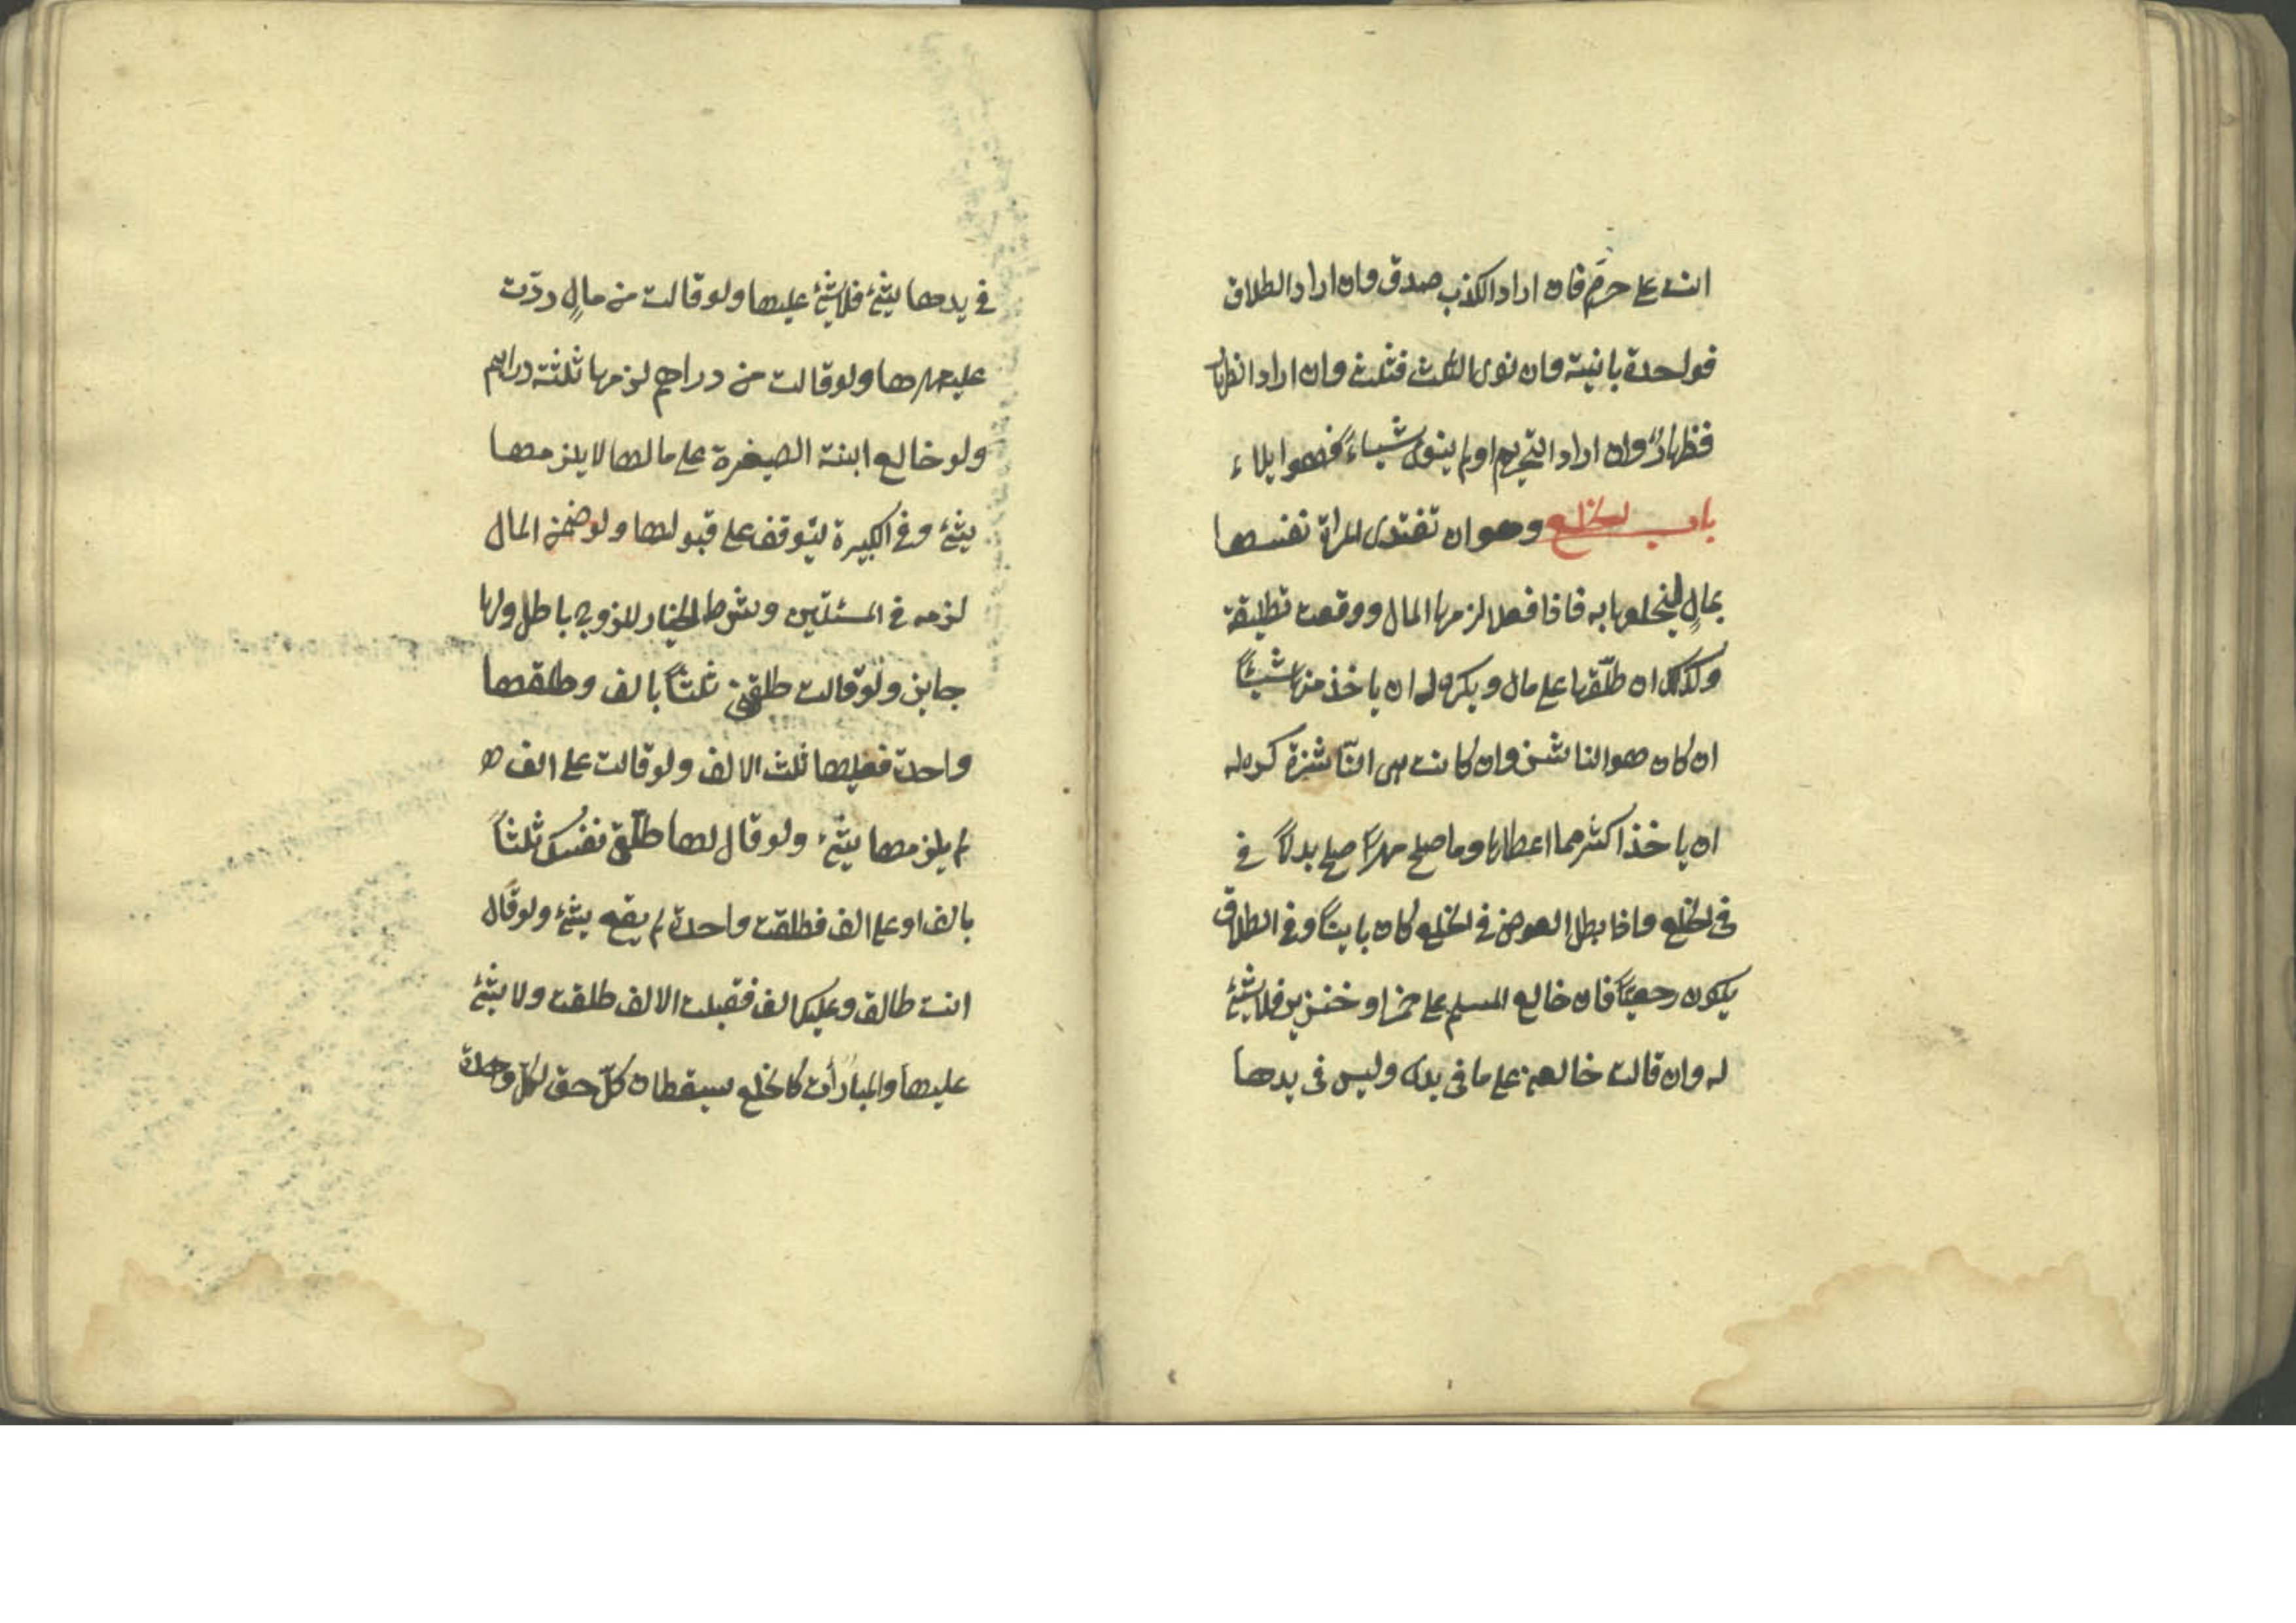 انت علي حرم فان اراد الكذب صدق وان اراد الطلاق
فواحدة باينة وان نوى الثلث فثلث وان اراد الظهار
فظهارٌ وان اراد التحريم او لم ينوى شيأً فهو ايلاء
باب الخلع وهو ان تفتدى المراة نفسها
بمالٍ ليخلعها به فاذا فعلا لزمها المال ووقعت تطليقة
وكذلك ان طلّقها على مال ويكره له ان ياخذ منها شيئاً
ان كان هو الناشز وان كانت هى النّاشزة كره له
ان ياخذ اكثر مما اعطاها وما صلح مهراً صلح بدلاً في
فى الخلع واذا بطل العوض في الخلع كان بايناً وفي الطلاق
يكون رجعيّاً فان خالع المسلم على خمر او خنزير فلا شئ
له وان قالت خالعني على ما فى يدى وليس فى يدها
في يدها شئ فلا شئ عليها ولو قالت من مالٍ ردّت
عليه مهرها ولو قالت من دراهم لزمها ثلثة دراهم
ولو خالع ابنته الصغيرة على مالها لا يلزمها
شئ وفي الكبيرة يتوقف على قبولها ولو ضمن المال
لزمه في المسئلتين وشرط الخيار للزوج باطل ولها
جايز ولو قالت طلقني ثلثاً بالف وطلقها
واحدة فعليها ثلث الالف ولو قالت على الف
لم يلزمها شئ ولو قال لها طلّقى نفسك ثلثاً
بالف او على الف فطلقت واحدة لم يقع شئ ولو قال
انت طالق وعليك الف فقبلت الالف طلقت ولا شئ
عليها والمبارأت كالخلع يسقطان كلّ حق لكلّ واحدة